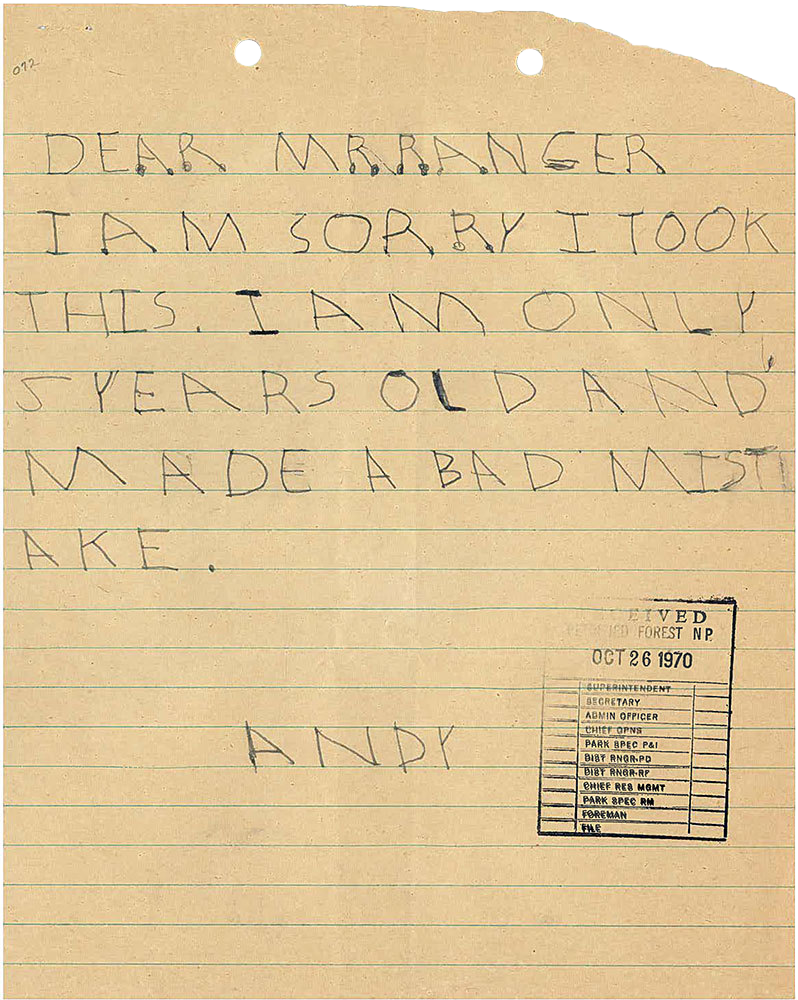 072
DEAR MR RANGER
I AM SORRY I TOOK
THIS. I AM ONLY
5 YEARS OLD AND
MADE A BAD MIST
AKE.
ANDY
RECEIVED
PETRIFIED FOREST N.P.
OCT 26 1970
SUPERINTENDENT
SECRETARY
ADMIN OFFICER
CHIEF OPNS
PARK SPEC P&I
DIST RNGR-PD
DIST RNGR-RF
CHIEF RES MGMT
PARK SPEC RM
FOREMAN
FILE